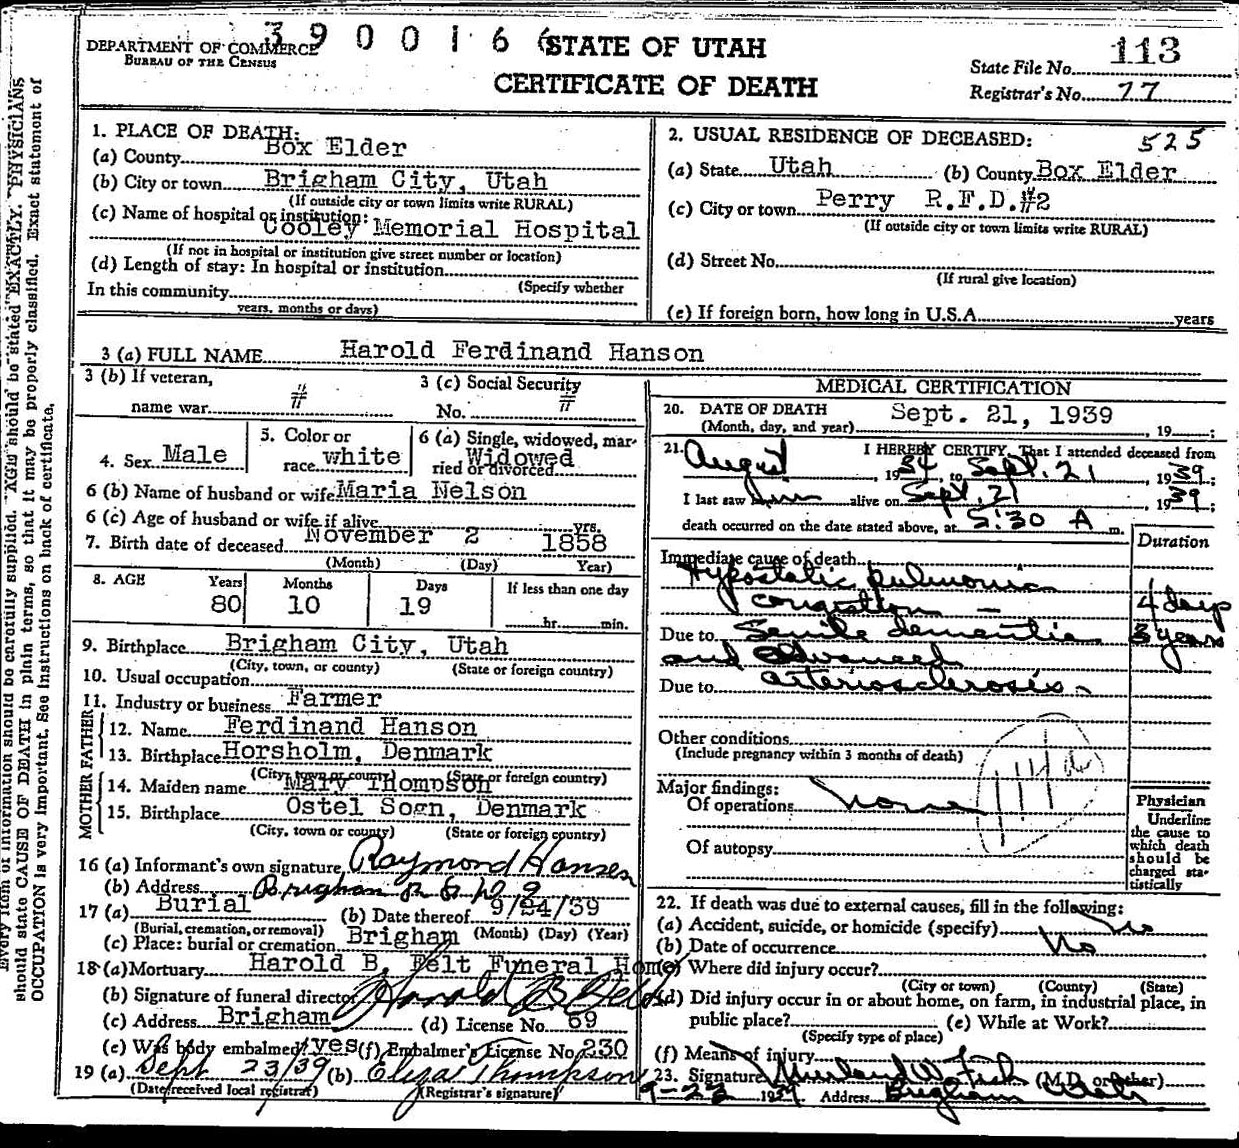 3900166
DEPARTMENT OF COMMERCE
BUREAU OF THE CENSUS
STATE OF UTAH
CERTIFICATE OF DEATH
State File No. 113
Registrar's No. 77
Every item of information should be carefully supplied. AGE should be stated EXACTLY. PHYSICIANS
should state CAUSE OF DEATH in plain terms, so that it may be properly classified. Exact statement of
OCCUPATION is very important. See instructions on back of certificate.
1. PLACE OF DEATH:
(a) County Box Elder
(b) City or town Brigham City, Utah
(If outside city or town limits write RURAL)
(c) Name of hospital or institution:
Cooley Memorial Hospital
(If not in hospital or institution give street number or location)
(d) Length of stay: In hospital or institution
(Specify whether
In this community
years, months or days)
2. USUAL RESIDENCE OF DECEASED: 525
(a) State Utah (b) County Box Elder
(c) City or town Perry R.F.D.#2
(If outside city or town limits write RURAL)
(d) Street No.
(If rural give location)
(e) If foreign born, how long in U.S.A. years
3 (a) FULL NAME Harold Ferdinand Hanson
3 (b) If veteran,
name war #
3 (c) Social Security
No. #
4. Sex Male
5. Color or
race white
6 (a) Single, widowed, mar-
ried or divorced Widowed
6 (b) Name of husband or wife Maria Nelson
6 (c) Age of husband or wife if alive yrs.
7. Birth date of deceased November 2 1858
(Month) (Day) Year)
8. AGE Years Months Days If less than one day
80 10 19 hr. min.
9. Birthplace Brigham City, Utah
(City, town, or county) (State or foreign country)
10. Usual occupation
11. Industry or business Farmer
FATHER
12. Name Ferdinand Hanson
13. Birthplace Horsholm, Denmark
(City, town or county) (State or foreign country)
MOTHER
14. Maiden name Mary Thompson
15. Birthplace Ostel Sogn, Denmark
(City, town or county) (State or foreign country)
16 (a) Informant's own signature Raymond Hansen
(b) Address Brigham
17 (a) Burial (b) Date thereof 9/24/39
(Burial, cremation, or removal) (Month) (Day) (Year)
(c) Place: burial or cremation Brigham
18 (a) Mortuary Harold B. Felt Funeral Home
(b) Signature of funeral director Harold B Felt
(c) Address Brigham (d) License No. 69
(e) Was body embalmed? yes (f) Embalmer's License No. 230
19 (a) Sept 23/39 (b) Eliza Thompson
(Date received local registrar) (Registrar's signature)
MEDICAL CERTIFICATION
20. DATE OF DEATH Sept. 21, 1939
(Month, day, and year) , 19 ;
21. I HEREBY CERTIFY, That I attended deceased from
August , 1934, to Sept. 21 , 1939;
I last saw him alive on Sept. 21 1939;
death occurred on the date stated above, at 5:30 A m.
Duration
Immediate cause of death
Hypostatic pulmonic
congestion - 4 days
Due to Senile dementia 3 years
and advanced
Due to arteriosclerosis
Other conditions
(Include pregnancy within 3 months of death)
Major findings:
Of operations none
Of autopsy
Physician
Underline
the cause to
which death
should be
charged sta-
tistically
22. If death was due to external causes, fill in the following:
(a) Accident, suicide, or homicide (specify) No
(b) Date of occurrence No
(c) Where did injury occur?
(City or town) (County) (State)
(d) Did injury occur in or about home, on farm, in industrial place, in
public place? (e) While at Work?
(Specify type of place)
(f) Means of injury
23. Signature (M.D. or other)
9-23 1939 Address Brigham Utah